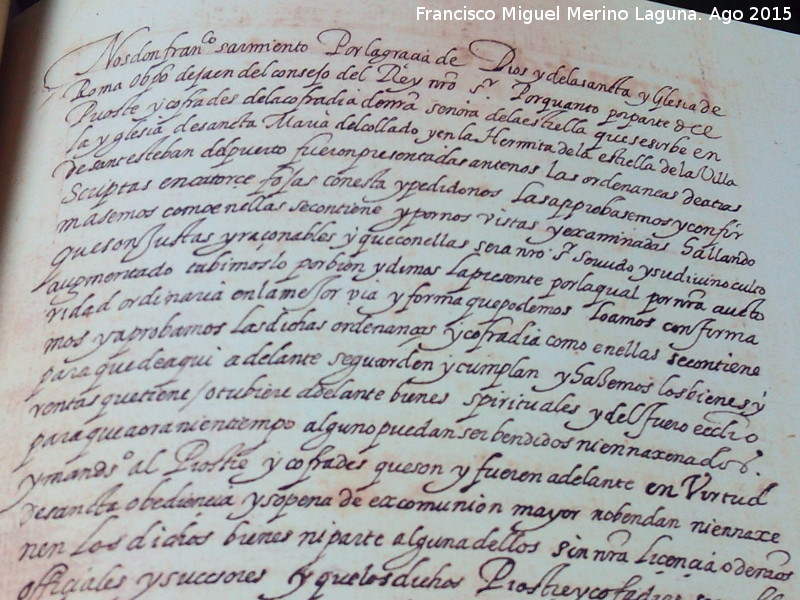 Francisco Miguel Merino Laguna. Ago 2015
Nos don fran.co sarmiento Por la gracia de Dios y de la sancta yglesia de
Roma obpo de jaen del consejo del Rey nro s.r Por quanto por parte de el
Prioste y cofrades de la cofradia de nra señora de la estrella que se sirbe en
la yglesia de sancta Maria del collado y en la Hermita de la estrella de la Villa
de santesteban del puerto fueron presentadas ante nos las ordenanças de atras
Scriptas en catorce fojas con esta y pedidonos las approbasemos y confir
masemos como en ellas se contiene y por nos vistas y examinadas hallando
que son Justas y raçonables y que con ellas sera nro s.r seruido y su diuino culto
augmentado tubimoslo por bien y dimos la presente por la qual por nra aucto
ridad ordinaria en la mejor via y forma que podemos loamos confirma
mos y aprobamos las dichas ordenanças y cofradia como en ellas se contiene
para que de aqui adelante se guarden y cumplan y haçemos los bienes y
rentas que tiene / o tubiere adelante bienes spirituales y del fuero ecclico
para que aora ni en tiempo alguno puedan ser bendidos ni ennaxenados
y mandº al Prioste y cofrades que son y fueren adelante en Virtud
de sancta obediencia y so pena de excomunion mayor no bendan ni ennaxe
nen los dichos bienes ni parte alguna dellos sin nra licencia o de nros
officiales y succsores y que los dichos Prioste y cofrades